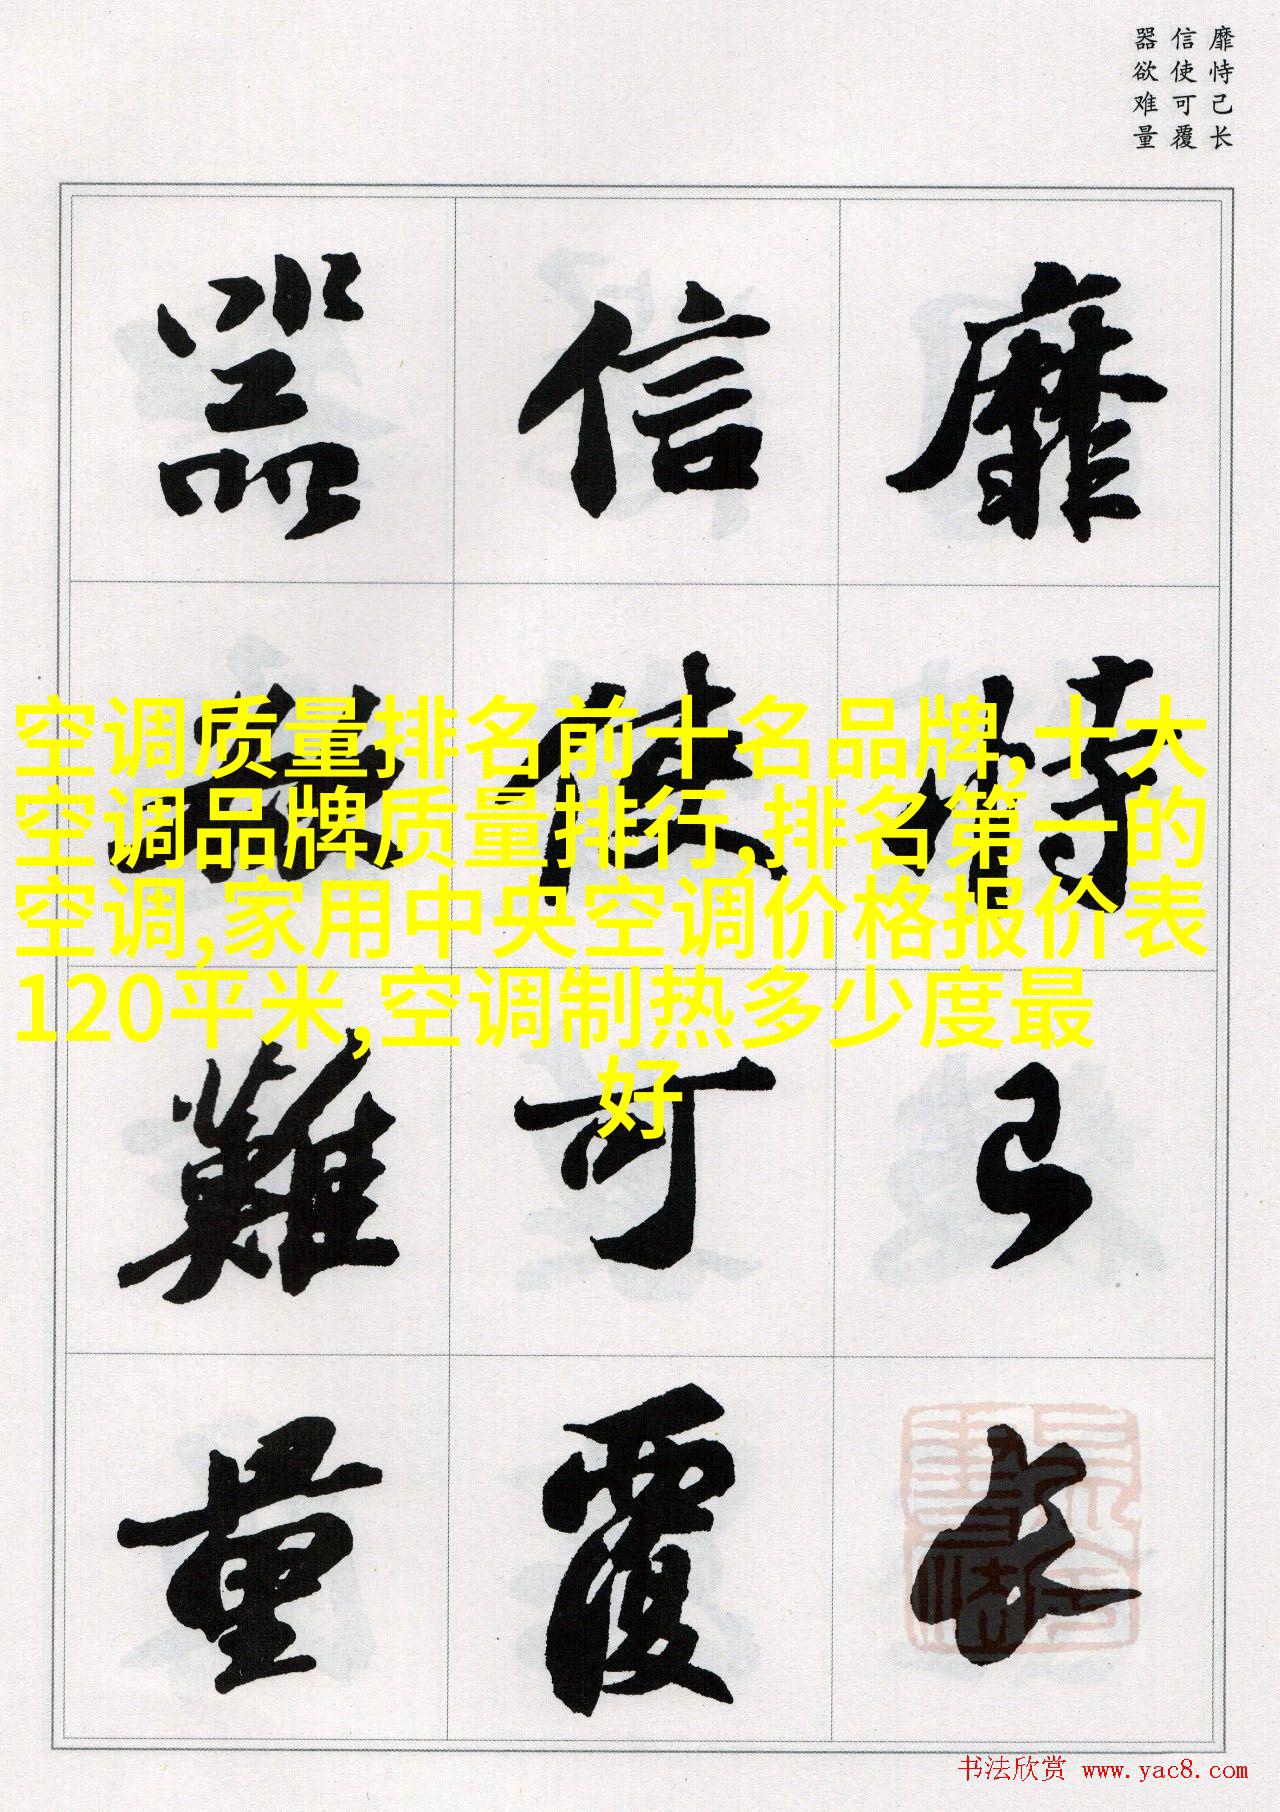 靡恃己长
信使可覆
器欲难量
靡恃己長
信使可覆
器欲難量
空调质量排名前十名品牌,十大
空调品牌质量排行,排名第一的
空调,家用中央空调价格报价表
120平米,空调制热多少度最
好
书法欣赏 www.yac8.com